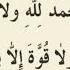 مد لله ولا
لا قُوَّةَ إِلَّا بِ